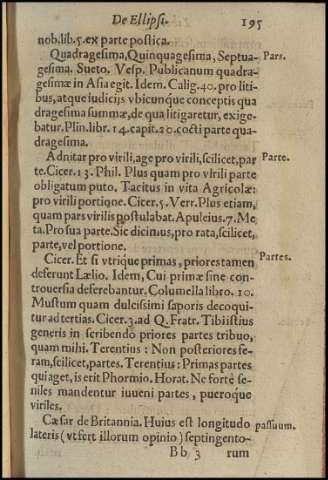 De Ellipsi. 195
nob.lib.5.ex parte postica.
Quadragesima, Quinquagesima, Septua- Pars.
gesima. Sueto. Vesp. Publicanum quadra-
gesimæ in Asia egit. Idem. Calig.40. pro liti-
bus, atque iudicijs vbicunque conceptis qua
dragesima summæ, de qua litigaretur, exige-
batur. Plin. libr. 14. capit. 20. cocti parte qua-
dragesima.
Adnitar pro virili, age pro virili, scilicet, par Parte.
te. Cicer. 13. Phil. Plus quam pro virili parte
obligatum puto. Tacitus in vita Agricolæ:
pro virili portione. Cicer. 5. Verr. Plus etiam,
quam pars virilis postulabat. Apuleius. 7. Me
ta. Pro sua parte. Sic dicimus, pro rata, scilicet,
parte, vel portione.
Cicer. Et si vtrique primas, priores tamen Partes.
deferunt Lælio. Idem, Cui primæ sine con-
trouersia deferebantur. Columella libro. 10.
Mustum quam dulcissimi saporis decoqui-
tur ad tertias. Cicer. 3. ad Q. Fratr. Tibi istius
generis in scribendo priores partes tribuo,
quam mihi. Terentius: Non posteriores fe-
ram, scilicet, partes. Terentius: Primas partes
qui aget, is erit Phormio. Horat. Ne forte se-
niles mandentur iuueni partes, pueroque
viriles.
Cæsar de Britannia. Huius est longitudo passuum.
lateris (vt fert illorum opinio) septingento-
Bb 3 rum